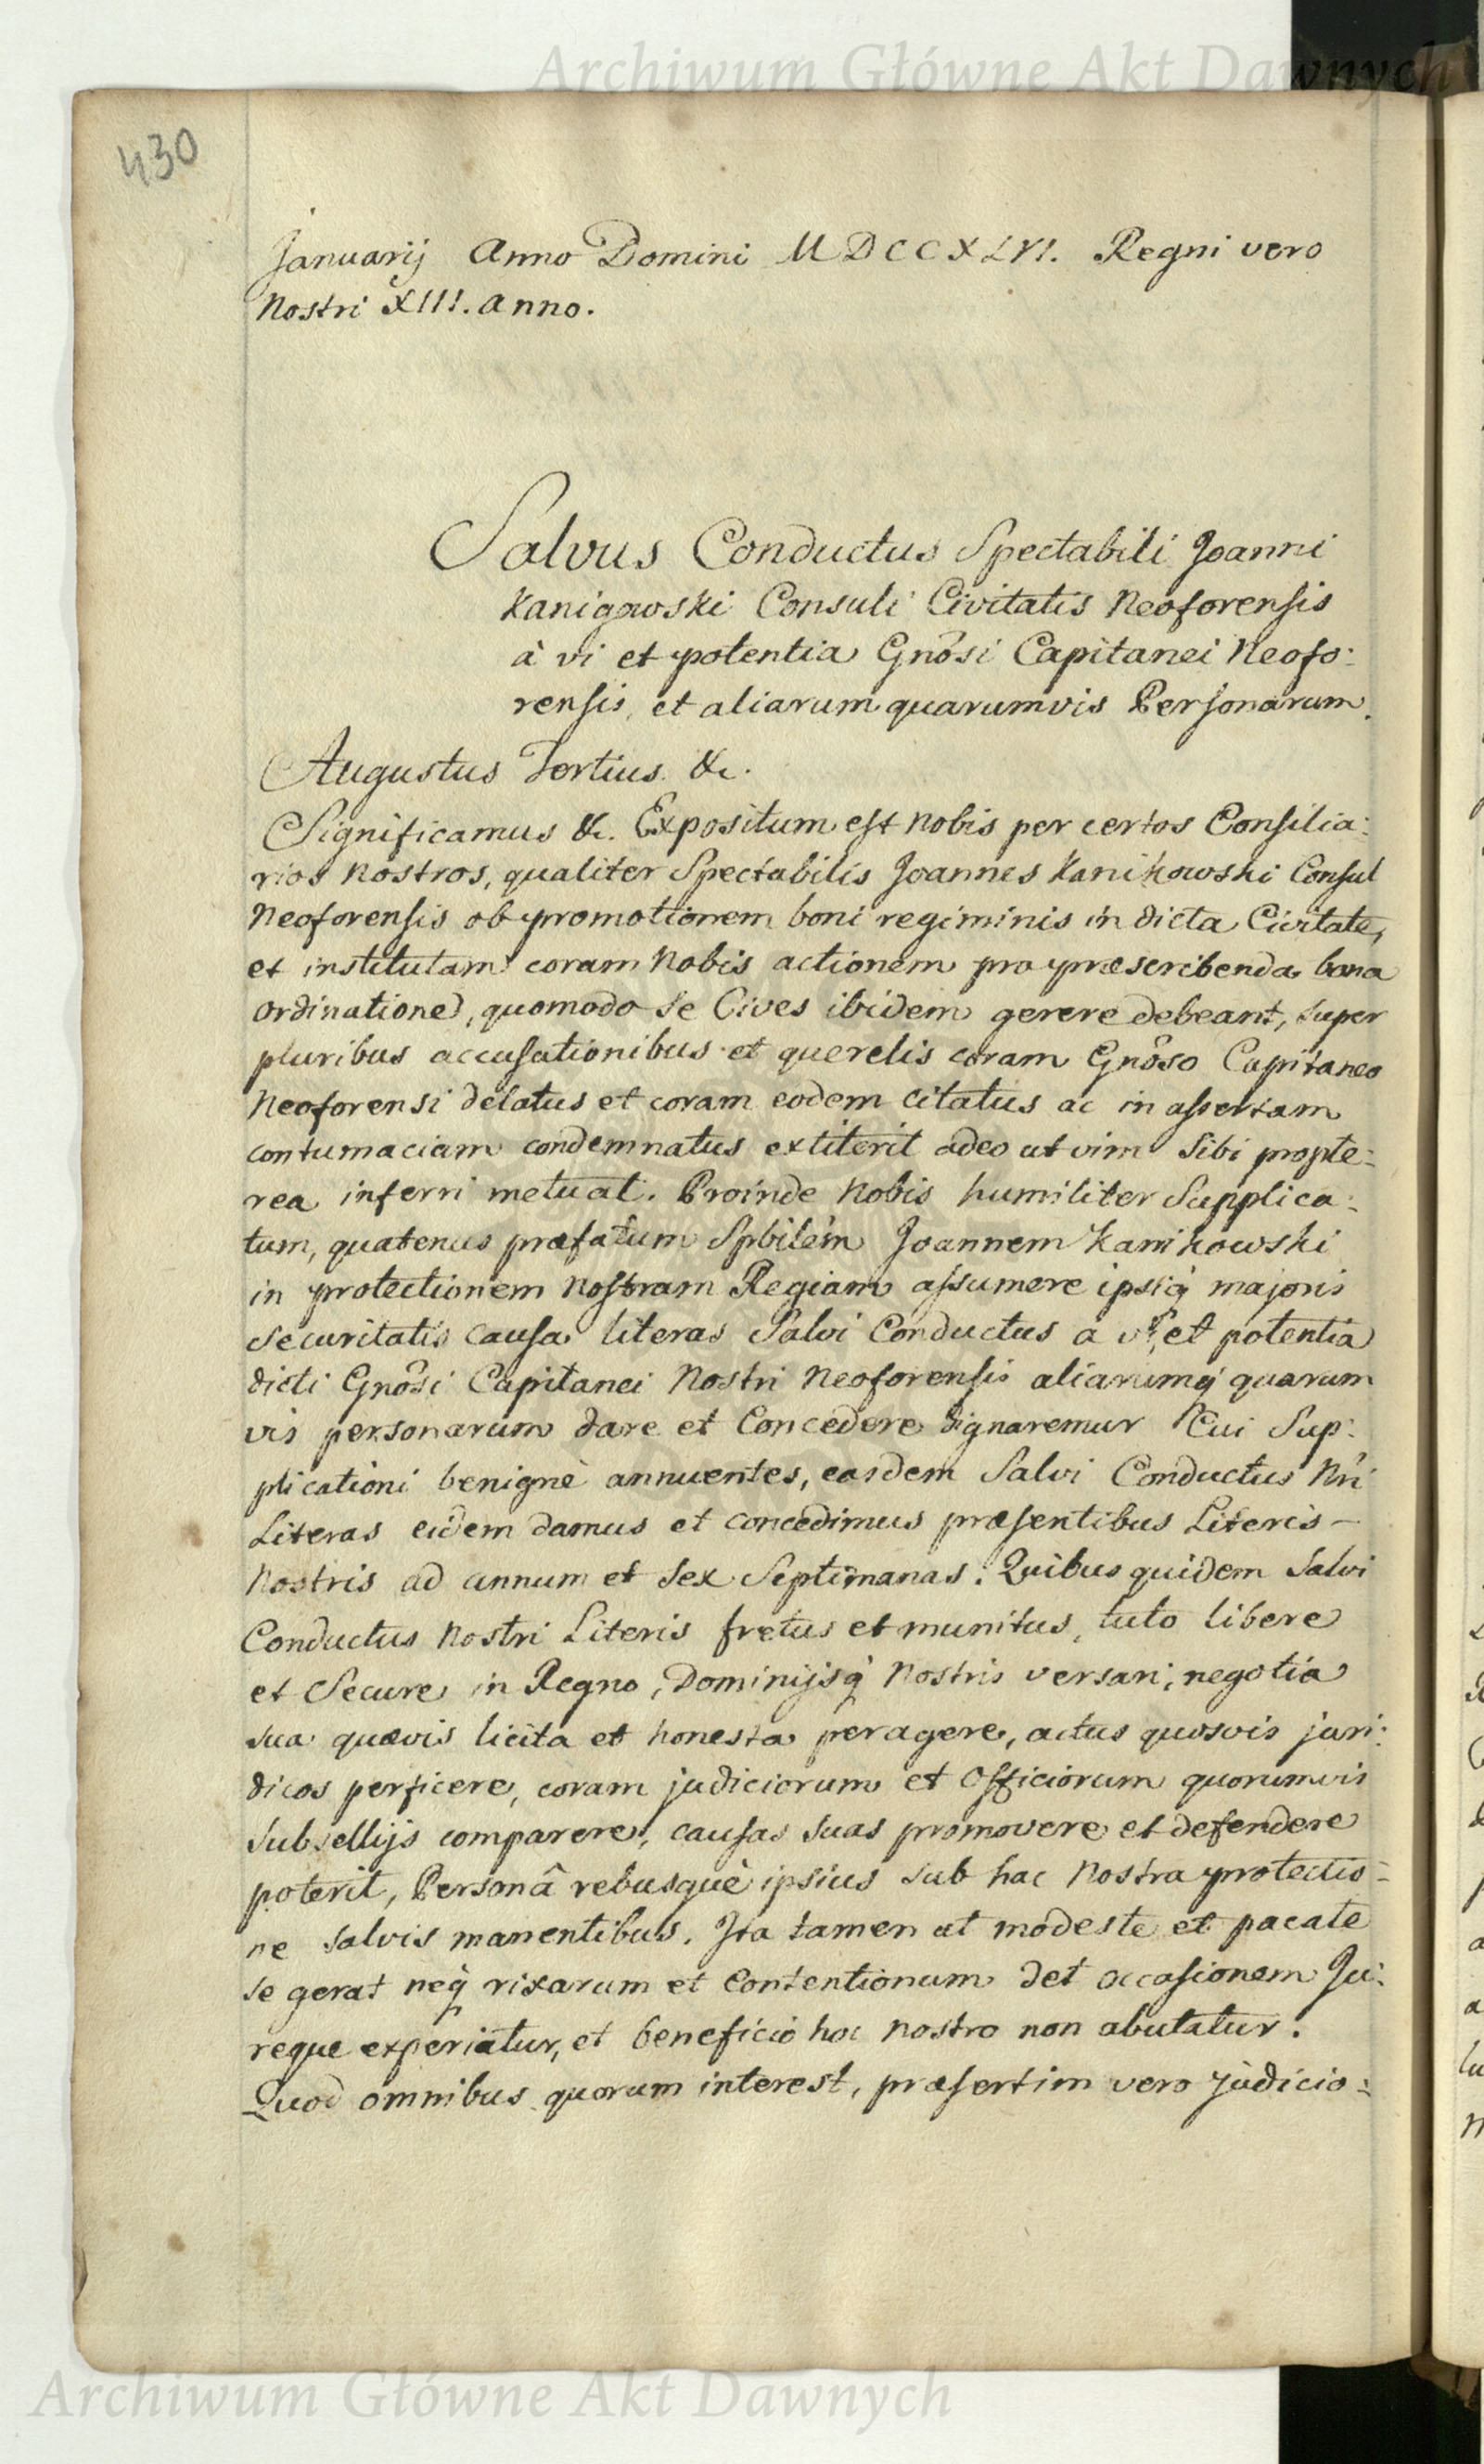 Archiwum Główne Akt Dawnych
430
Januarij Anno Domini MDCCXLVI. Regni vero
Nostri XIII. Anno.
Salvus Conductus Spectabili Joanni
Kanigowski Consuli Civitatis Neoforensis
à vi et potentia Gnôsi Capitanei Neofo:
rensis, et aliarum quarumvis Personarum.
Augustus Tertius &c.
Significamus &c. Expositum est nobis per certos Consilia:
rios Nostros, qualiter Spectabilis Joannes Kanikowski Consul
Neoforensis ob promotionem boni regiminis in dicta Civitate,
et institutam coram Nobis actionem pro præscribenda bona
Ordinatione, quomodo se Cives ibidem gerere debeant, super
pluribus accusationibus et querelis coram Gnôso Capitaneo
Neoforensi delatus et coram eodem citatus ac in assertam
contumaciam condemnatus extiterit adeo ut vim sibi propte:
rea inferri metuat. Proinde Nobis humiliter Supplica:
tum, quatenus præfatum Spbilem Joannem Kanikowski
in protectionem Nostram Regiam assumere ipsiq majoris
Securitatis causa literas Salvi Conductus a vi et potentia
dicti Gnôsi Capitanei Nostri Neoforensis aliarumq quarum
vis personarum dare et Concedere dignaremur Cui Sup:
plicationi benignè annuentes, easdem Salvi Conductus Nri
Literas eidem damus et concedimus præsentibus Literis –
Nostris ad annum et sex Septimanas. Quibus quidem Salvi
Conductus Nostri Literis fretus et munitus, tuto libere
et Secure in Regno, Dominijsq Nostris versari, negotia
sua quævis licita et honesta peragere, actus quosvis juri:
dicos perficere, coram judiciorum et Officiorum quorumvis
Subsellijs comparere, causas suas promovere et defendere
poterit, Personâ rebusquè ipsius sub hac Nostra protectio=
ne salvis manentibus. Ita tamen ut modeste et pacate
se gerat neq rixarum et Contentionum det occasionem Ju:
reque experiatur, et beneficio hoc nostro non abutatur.
Quod omnibus quorum interest, præsertim vero judicio:
Archiwum Główne Akt Dawnych